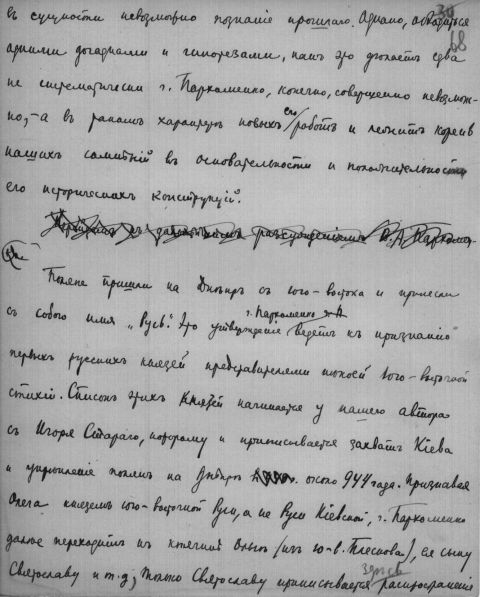 30
68
въ сущности невозможно познаніе прошлаго. Однако, обходиться
одними догадками и гипотезами, какъ это дѣлаетъ едва
не систематически г. Пархоменко, конечно, совершенно невозмож-
но, – а въ такомъ характерѣ новыхъ его работъ и лежитъ корень
нашихъ сомнѣній въ основательности и положительности
его историческихъ конструкцій.
Поляне пришли на Днѣпръ съ юго-востока и принесли
съ собою имя „Русь“. Это утвержденіе г. Пархоменко ведетъ къ признанію
первыхъ русскихъ князей представителями южной юго-восточной
стихіи. Списокъ этихъ князей начинается у нашего автора
съ Игоря Стараго, которому и приписывается захватъ Кіева
и укрѣпленіе полянъ на Днѣпрѣ около 944 года. Признавая
Олега княземъ юго-восточной Руси, а не Руси Кіевской, г. Пархоменко
далѣе переходитъ къ княгинѣ Ольгѣ (изъ ю-в. Плескова), ея сыну
Святославу и т.д; только Святославу приписывается здѣсь распространеніе